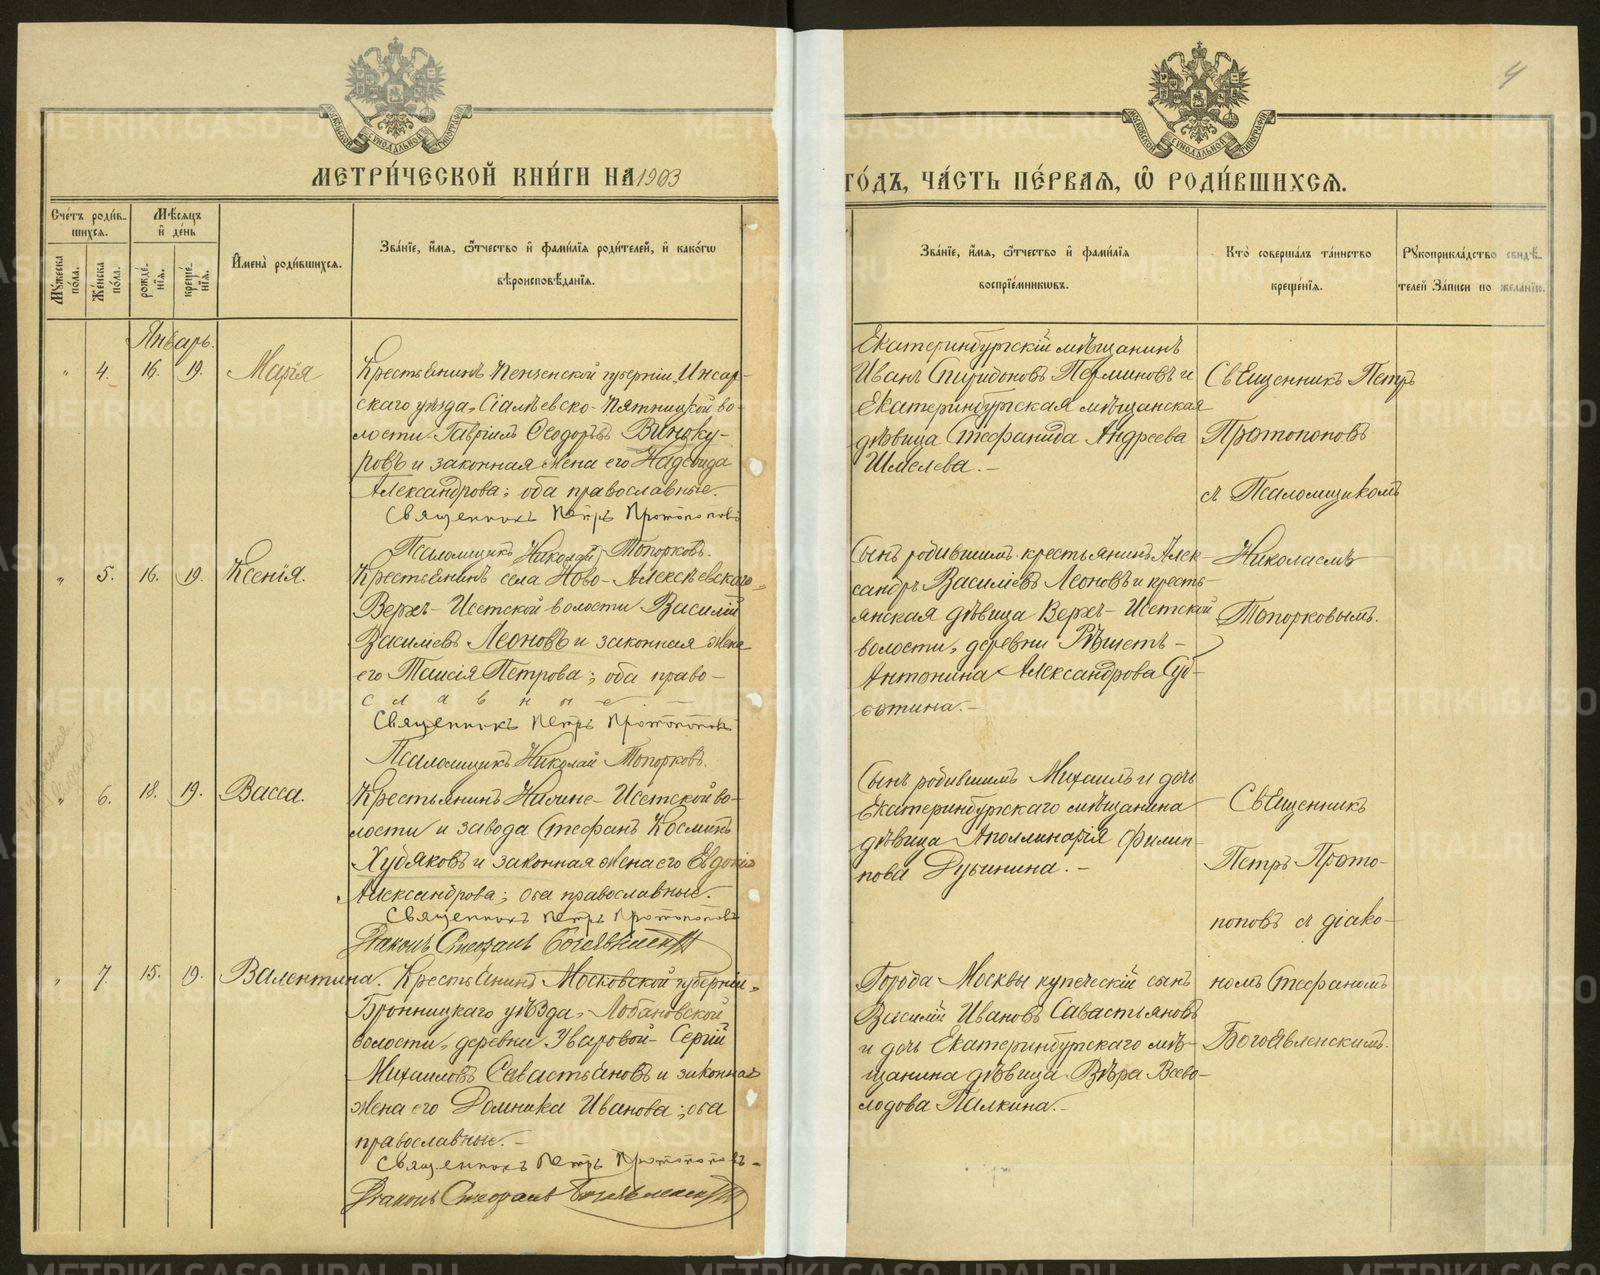 4
МОСКОВСКОЙ СѴНОДАЛЬНОЙ ТИПОГРАФІИ
МОСКОВСКОЙ СѴНОДАЛЬНОЙ ТИПОГРАФІИ
МЕТРИ́ЧЕСКОЙ КНИ́ГИ НА 1903
ГО́ДЪ, ЧА́СТЬ ПЕ́РВАЯ, Ѿ РОДИ́ВШИХСЯ.
Сче́тъ роди́в-
шихся.
Му́жеска по́ла.
Же́нска по́ла.
Мѣ́сяцъ
и де́нь
рожде́нїя.
креще́нїя.
Имена̀ роди́вшихся.
Зва́нїе, и́мя, ѻ́тчество и фами́лїя роди́телей, и како́гѡ
вѣроисповѣ́данїя.
Зва́нїе, и́мя, ѻ́тчество и фами́лїя
воспрїе́мниковъ.
Кто̀ соверша́лъ та́инство
креще́нїя.
Рукоприкла́дство свидѣ́-
телей за́писи по жела́нїю.
Январь.
" 4. 16. 19. Марія
Крестьянинъ Пензенской губерніи, Инсар-
скаго уѣзда, Сіалѣевско-Пятницкой во-
лости Гавріилъ Ѳеодоровъ Виноку-
ровъ и законная жена его Надежда
Александрова; оба православные.
Священникъ Петръ Протопоповъ
Псаломщикъ Николай Топорковъ.
Екатеринбургскій мѣщанинъ
Иванъ Спиридоновъ Перминовъ и
Екатеринбургская мѣщанская
дѣвица Стефанида Андреева
Шмелева.-
Священникъ Петръ
Протопоповъ
съ Псаломщикомъ
Николаемъ
Топорковымъ.
" 5. 16. 19. Ксенія.
Крестьянинъ села Ново-Алексѣевскаго,
Верхъ-Исетской волости Василій
Васильевъ Леоновъ и законная жена
его Таисія Петрова; оба право-
славные.-
Священникъ Петръ Протопоповъ
Псаломщикъ Николай Топорковъ.
Сынъ родившимъ крестьянинъ Алек-
сандръ Васильевъ Леоновъ и кресть-
янская дѣвица Верхъ-Исетской
волости, деревни Рѣшетъ-
Антонина Александрова Суб-
ботина.-
" 6. 18. 19. Васса.
Крестьянинъ Нижне-Исетской во-
лости и завода Стефанъ Косминъ
Худяковъ и законная жена его Евдокія
Александрова; оба православные.-
Священникъ Петръ Протопоповъ
Діаконъ Стефанъ Богоявленскій
Сынъ родившимъ Михаилъ и дочь
Екатеринбургскаго мѣщанина
дѣвица Аполлинарія Филип-
пова Дубинина.-
Священникъ
Петръ Прото-
поповъ съ діако-
номъ Стефаномъ
Богоявленскимъ.
" 7. 15. 19. Валентина.
Крестьянинъ Московской губерніи,
Бронницкаго уѣзда, Лобановской
волости, деревни Уваровой Сергій
Михаиловъ Савастьяновъ и законная
жена его Домника Иванова; оба
православные.-
Священникъ Петръ Протопоповъ-
Діаконъ Стефанъ Богоявленскій
Города Москвы купеческій сынъ
Василій Ивановъ Савастьяновъ
и дочь Екатеринбургскаго мѣ-
щанина дѣвица Вѣра Всево-
лодова Палкина.-
METRIKI.GASO-URAL.RU